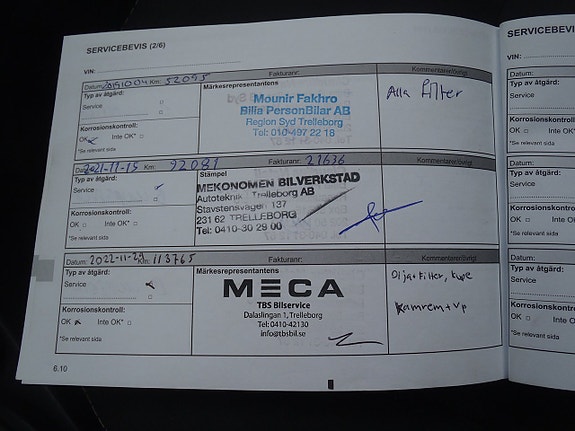 SERVICEBEVIS (2/6)
VIN:
Datum: 20191004 Km: 52095 Fakturanr: Kommentarer/övrigt
Typ av åtgärd: Märkesrepresentantens
Service
Korrosionskontroll:
OK Inte OK*
*Se relevant sida
Mounir Fakhro
Bilia PersonBilar AB
Region Syd Trelleborg
Tel: 010-497 22 18
Alla Filter
2021-11-15 Km: 92081 Fakturanr: 27636 Kommentarer/övrigt
Typ av åtgärd: Stämpel
Service
Korrosionskontroll:
OK Inte OK*
*Se relevant sida
MEKONOMEN BILVERKSTAD
Autoteknik Trelleborg AB
Stavstensvägen 137
231 62 TRELLEBORG
Tel: 0410-30 29 00
Datum: 2022-11-29 Km: 113765 Fakturanr: Kommentarer/övrigt
Typ av åtgärd: Märkesrepresentantens
Service
Korrosionskontroll:
OK Inte OK*
*Se relevant sida
MECA
TBS Bilservice
Dalaslingan 1, Trelleborg
Tel: 0410-42130
info@tbsbil.se
Olja+Filter, kupe
Kamrem+vp
6.10
SERVICEBEVIS
VIN:
Datum:
Typ av åtgärd:
Service
Korrosionskontroll:
OK
*Se relevant sida
Datum:
Typ av åtgärd:
Service
Korrosionskontroll:
OK Inte
*Se relevant sida
Datum:
Typ av åtgärd:
Service
Korrosionskontroll:
OK Inte
*Se relevant sida